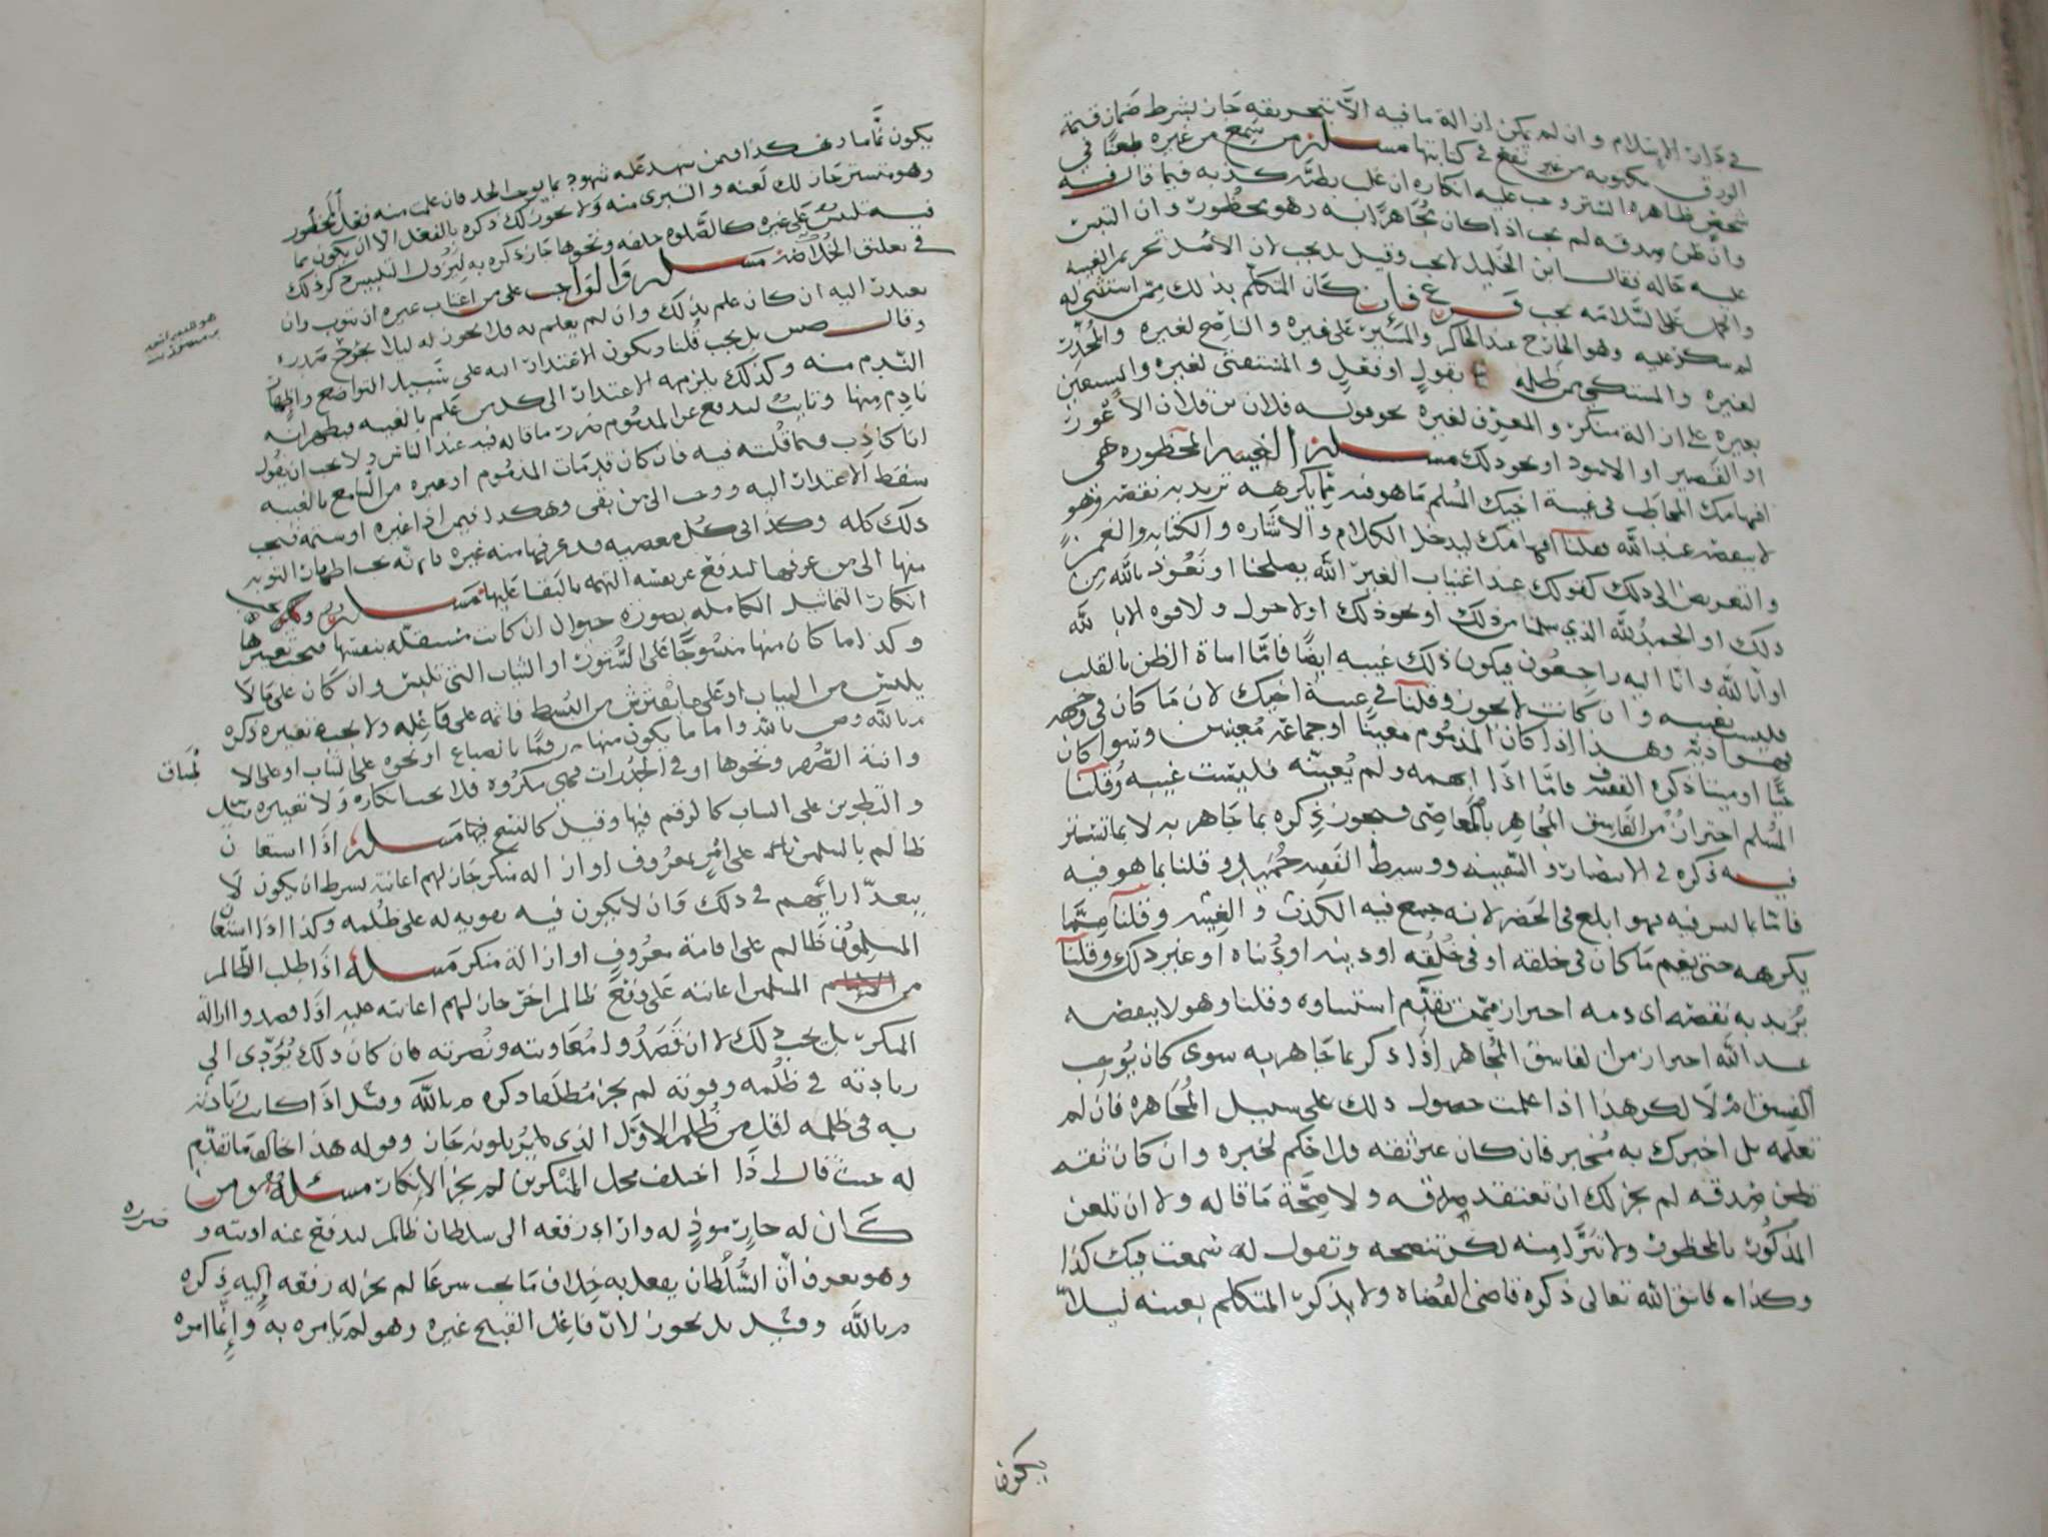 في دار الاسلام وان لم يمكن ازالة ما فيه الا بتحريقه جاز بشرط ضمان قيمة
الورق مكتوبه من غير نفع في كتابتها مسئلة من سمع من غيره طعنا في
شخص ظاهره الستر وجب عليه انكاره ان غلب بظنه كذبه فيما قال فيه
وان ظن صدقه لم يجب اذا كان مجاهرا به وهو محظور وان التبس
عليه حاله فقال ابن الخليل لا يجب وقيل بل يجب لان الاصل تحريم الغيبه
والحمل على السلامه يجب فرع فان كان المتكلم بذلك ممن استثني له
لم ينكر عليه وهو الجارح عند الحاكر والمشير على غيره والناصح لغيره والمحذر
لغيره والمشتكي من ظلمه بقول او فعل والمستفتي لغيره والمستعين
بغيره على ازالة منكر والمعرف لغيره بحو قوله فلان بن فلان الاعور
او القصير او الاسود او نحو ذلك مسئلة الغيبه المحظوره هي
افهامك المخاطب في غيبة اخيك المسلم ما هو فيه مما يكرهه تريد به نقصه وهو
لا ينقصه عند الله فقلنا افهامك ليدخل الكلام والاشاره والكتابه والغمز
والتعريض الى ذلك كقولك عند اغتياب الغير الله يصلحنا او نعوذ بالله من
ذلك او الحمد لله الذي سلمنا من ذلك او نحو ذلك او لا حول ولا قوه الا بالله
او انا لله وانا اليه راجعون فيكون ذلك غيبه ايضا فاما اساة الظن بالقلب
فليست بغيبه وان كانت لا تجوز وقلنا في غيبة اخيك لان ما كان في وجهه
فهو اذيه وهذا اذا كان المذموم معينا او جماعة معينين وسوا كان
حيا او ميتا ذكره الفقيه فاما اذا ابهمه ولم يعينه فليست غيبه وقلنا
المسلم احتراز من الفاسق المجاهر بالمعاصي فيجوز ذكره بما جاهر به لا بما تستر
فيه ذكره في الانتصار
فاما بما ليس فيه فهو ابلغ في الحضر لانه جمع فيه الكذب والغيبه وقلنا مما
يكرهه حتى يعم ما كان في خلقه او في خلقه او دينه او دنياه او غير ذلك وقلنا
يريد به نقصه اي ذمه احتراز ممن تقدم استثناوه وقلنا وهو لا ينقصه
عند الله احتراز من الفاسق المجاهر اذا ذكر بما جاهر به سوى كان يوجب
الفسق ام لا لكن هذا اذا علمت حصول ذلك على سبيل المجاهره فان لم
تعلمه بل اخبرك به مخبر فان كان غير ثقه فلا حكم لخبره وان كان ثقه
تظن صدقه لم يجز لك ان تعتقد صدقه ولا صحة ما قاله ولا ان تلعن
المذكور بالمحظور ولا تبرا منه لكن تنصحه وتقول له سمعت فيك كذا
وكذا فاتق الله تعالى ذكره قاضي القضاة ولا يذكر المتكلم بعينه ليلا
يكون
يكون نماما وهكذا فيمن شهد عليه شهود بما يوجب الحد فان علمت منه فعل المحظور
وهو متستر جاز لك لعنه والتبري منه ولا يجوز لك ذكره بالفعل الا ان يكون مما
فيه تلبيس على غيره كالصلوه خلفه ونحوها جاز ذكره به ليزول التلبيس ذكر ذلك
في تعليق الخلاصه مسئلة والواجب على من اغتاب غيره ان يتوب وان
يعتذر اليه ان كان علم بذلك وان لم يعلم به فلا يجوز له ليلا يجرح صدره
وقال ص بل يجب قلنا ويكون الاعتذار اليه على سبيل التواضع واظهار
الندم منه وكذلك يلزمه الاعتذار الى كل من علم بالغيبه فيظهر انه
نادم منها وتايب ليدفع عن المذموم ضرر ما قاله فيه عند الناس ولا يجب ان يقول
انا كاذب فيما قلته فيه فان كان قد مات المذموم او غيره من السامع بالغيبه
سقط الاعتذار اليه ووجب الى من بقى وهكذا فيمن اذا غيره او شتمه فيجب
ذلك كله وكذا في كل معصيه قد عرفها منه غيره فانه يجب اظهار التوبه
منها الى من عرفها ليدفع عن نفسه التهمه بالبقا عليها مسئلة ويجب
انكار التماثيل الكامله بصورة حيوان ان كانت مستقله بنفسها فيجب تغييرها
وكذا ما كان منها منسوجا على الستور او الثياب التي تلبس وان كان على ما لا
يلبس من الثياب او على ما يفترش من البسط فاثمه على فاعله ولا يجب تغييره ذكره
م بالله وص بالله واما ما يكون منها رقما بانصباغ او نحوه على الثياب او على الا
وانية الصفر ونحوها او في الجدرات فهي مكروه فلا يجب انكاره ولا تغييره وقيل
والتطريز على الثياب كالرقم فيها وقيل كالنسج فيها مسئلة اذا استعان
ظالم بالمسلمين على امر بمعروف او ازالة منكر جاز لهم اعانته بشرط ان يكون لا
يتعدا رايهم في ذلك وان لا يكون فيه تقويه له على ظلمه وكذا اذا استعان
المسلمون ظالم على اقامة معروف او ازالة منكر مسئلة اذا طلب الظالم
من المسلمين اعانته على دفع ظالم اخر جاز لهم اعانته عليه اذا قصدوا ازالة
المنكر بل يجب ذلك لا ان قصدوا معاونته ونصرته فان كان ذلك يؤدي الى
زيادته في ظلمه وقوته لم يجز مطلقا ذكره م بالله وقيل اذا كانت زيادته
به في ظلمه اقل من ظلم الاول الذي يزيلونه جاز وقوله هذا يخالف ما تقدم
له حيث قال اذا اختلف محل المنكرين لم يجز الانكار مسئلة ومن
كان له جار موذ له واراد رفعه الى سلطان ظالم ليدفع عنه اذيته و
وهو يعرف ان السلطان يفعل به خلاف ما يجب شرعا لم يجز له رفعه اليه ذكره
م بالله وقيل بل يجوز لان فاعل القبيح غيره وهو لم يامره به وانما امره